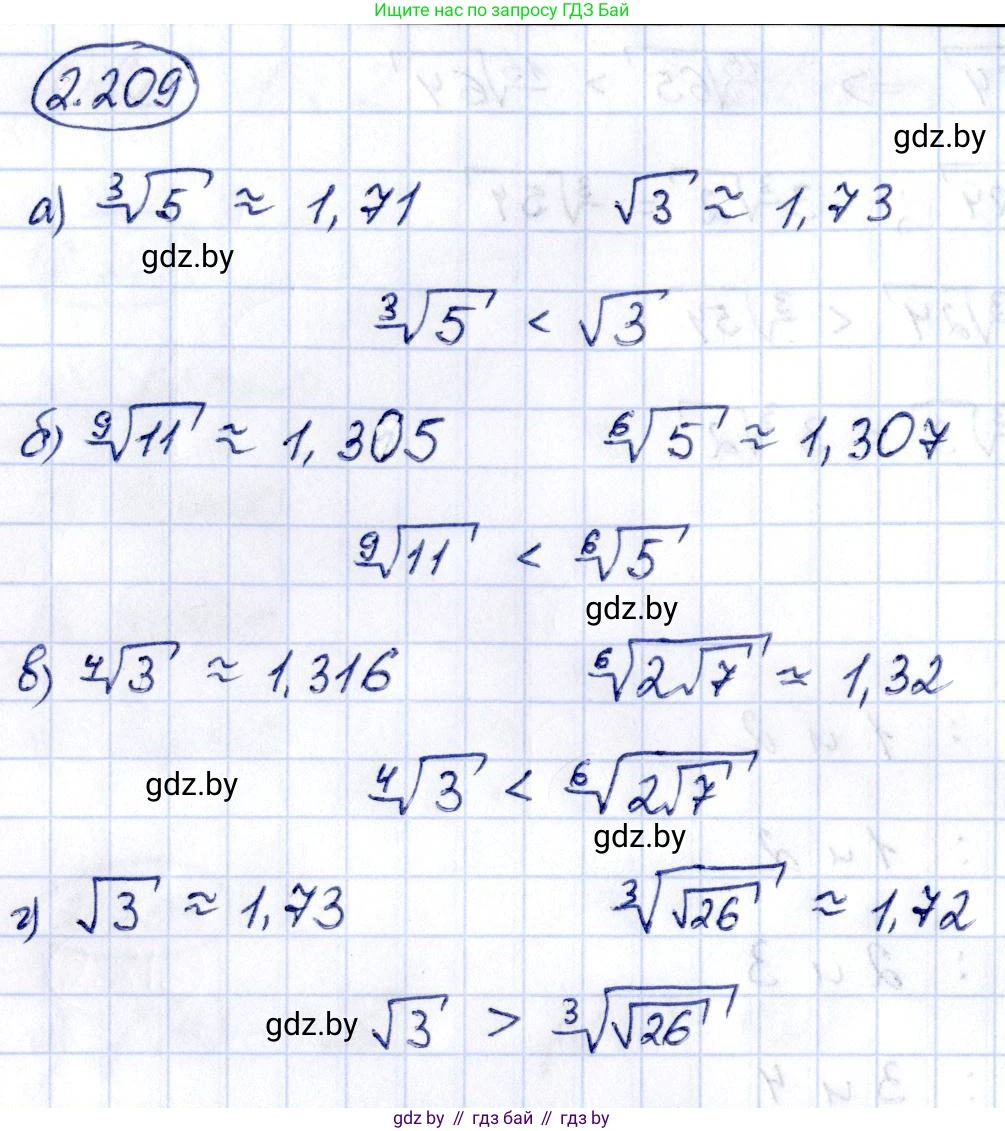 Ищите нас по запросу ГДЗ Бай
2.209
gdz.by
а) ∛5 ≈ 1,71 √3 ≈ 1,73
gdz.by
∛5 < √3
б) ⁹√11 ≈ 1,305 ⁶√5 ≈ 1,307
⁹√11 < ⁶√5
gdz.by
в) ⁴√3 ≈ 1,316 ⁶√(2√7) ≈ 1,32
gdz.by ⁴√3 < ⁶√(2√7)
gdz.by
г) √3 ≈ 1,73 ∛(√26) ≈ 1,72
gdz.by √3 > ∛(√26)
gdz.by // гдз бай // гдз by